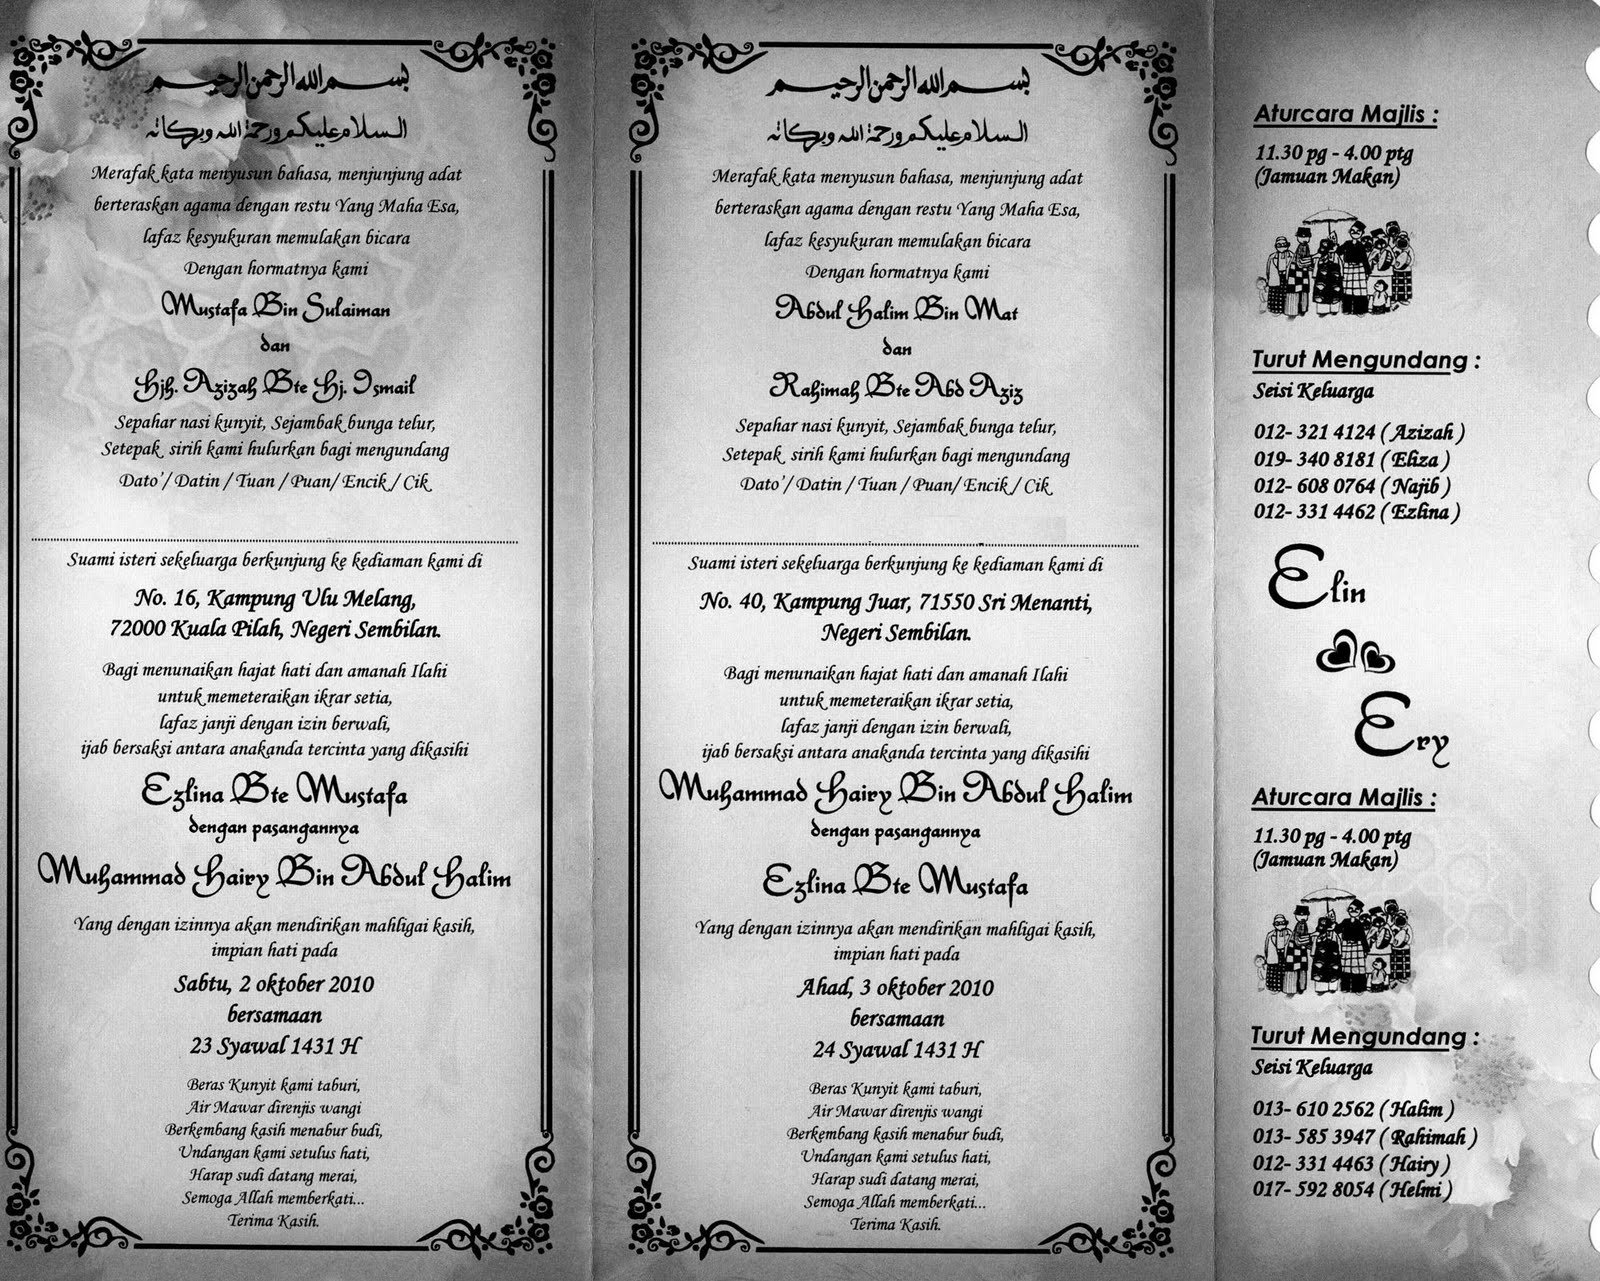 بسم الله الرحمن الرحيم
السلام عليكم ورحمة الله وبركاته
Merafak kata menyusun bahasa, menjunjung adat
berteraskan agama dengan restu Yang Maha Esa,
lafaz kesyukuran memulakan bicara
Dengan hormatnya kami
Mustafa Bin Sulaiman
dan
Hjh. Azizah Bte Hj. Ismail
Sepahar nasi kunyit, Sejambak bunga telur,
Setepak sirih kami hulurkan bagi mengundang
Dato'/ Datin / Tuan / Puan/ Encik / Cik
Suami isteri sekeluarga berkunjung ke kediaman kami di
No. 16, Kampung Ulu Melang,
72000 Kuala Pilah, Negeri Sembilan.
Bagi menunaikan hajat hati dan amanah Ilahi
untuk memeteraikan ikrar setia,
lafaz janji dengan izin berwali,
ijab bersaksi antara anakanda tercinta yang dikasihi
Ezlina Bte Mustafa
dengan pasangannya
Muhammad Hairy Bin Abdul Halim
Yang dengan izinnya akan mendirikan mahligai kasih,
impian hati pada
Sabtu, 2 oktober 2010
bersamaan
23 Syawal 1431 H
Beras Kunyit kami taburi,
Air Mawar direnjis wangi
Berkembang kasih menabur budi,
Undangan kami setulus hati,
Harap sudi datang merai,
Semoga Allah memberkati...
Terima Kasih.
بسم الله الرحمن الرحيم
السلام عليكم ورحمة الله وبركاته
Merafak kata menyusun bahasa, menjunjung adat
berteraskan agama dengan restu Yang Maha Esa,
lafaz kesyukuran memulakan bicara
Dengan hormatnya kami
Abdul Halim Bin Mat
dan
Rahimah Bte Abd Aziz
Sepahar nasi kunyit, Sejambak bunga telur,
Setepak sirih kami hulurkan bagi mengundang
Dato'/ Datin / Tuan / Puan/ Encik / Cik
Suami isteri sekeluarga berkunjung ke kediaman kami di
No. 40, Kampung Juar, 71550 Sri Menanti,
Negeri Sembilan.
Bagi menunaikan hajat hati dan amanah Ilahi
untuk memeteraikan ikrar setia,
lafaz janji dengan izin berwali,
ijab bersaksi antara anakanda tercinta yang dikasihi
Muhammad Hairy Bin Abdul Halim
dengan pasangannya
Ezlina Bte Mustafa
Yang dengan izinnya akan mendirikan mahligai kasih,
impian hati pada
Ahad, 3 oktober 2010
bersamaan
24 Syawal 1431 H
Beras Kunyit kami taburi,
Air Mawar direnjis wangi
Berkembang kasih menabur budi,
Undangan kami setulus hati,
Harap sudi datang merai,
Semoga Allah memberkati...
Terima Kasih.
Aturcara Majlis :
11.30 pg - 4.00 ptg
(Jamuan Makan)
Turut Mengundang :
Seisi Keluarga
012- 321 4124 ( Azizah )
019- 340 8181 ( Eliza )
012- 608 0764 ( Najib )
012- 331 4462 ( Ezlina )
Elin
Ery
Aturcara Majlis :
11.30 pg - 4.00 ptg
(Jamuan Makan)
Turut Mengundang :
Seisi Keluarga
013- 610 2562 ( Halim )
013- 585 3947 ( Rahimah )
012- 331 4463 ( Hairy )
017- 592 8054 ( Helmi )